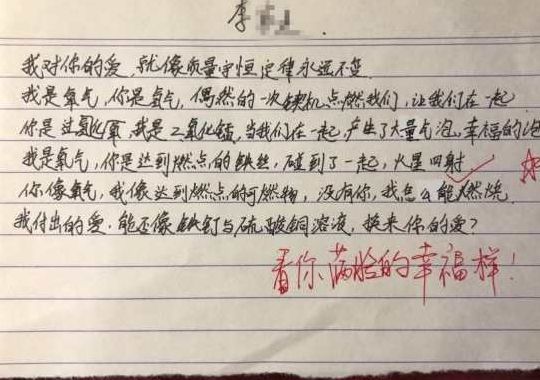 李
我对你的爱,就像质量守恒定律永远不变.
我是氧气,你是氢气,偶然的一次契机点燃我们,让我们在一起
你是过氧化氢,我是二氧化锰,当我们在一起,产生了大量气泡,幸福的泡
我是氧气,你是达到燃点的铁丝,碰到了一起,火星四射
你像氧气,我像达到燃点的可燃物,没有你,我怎么能燃烧.
我付出的爱,能否像铁钉与硫酸铜溶液,换来你的爱?
看你满脸的幸福样!